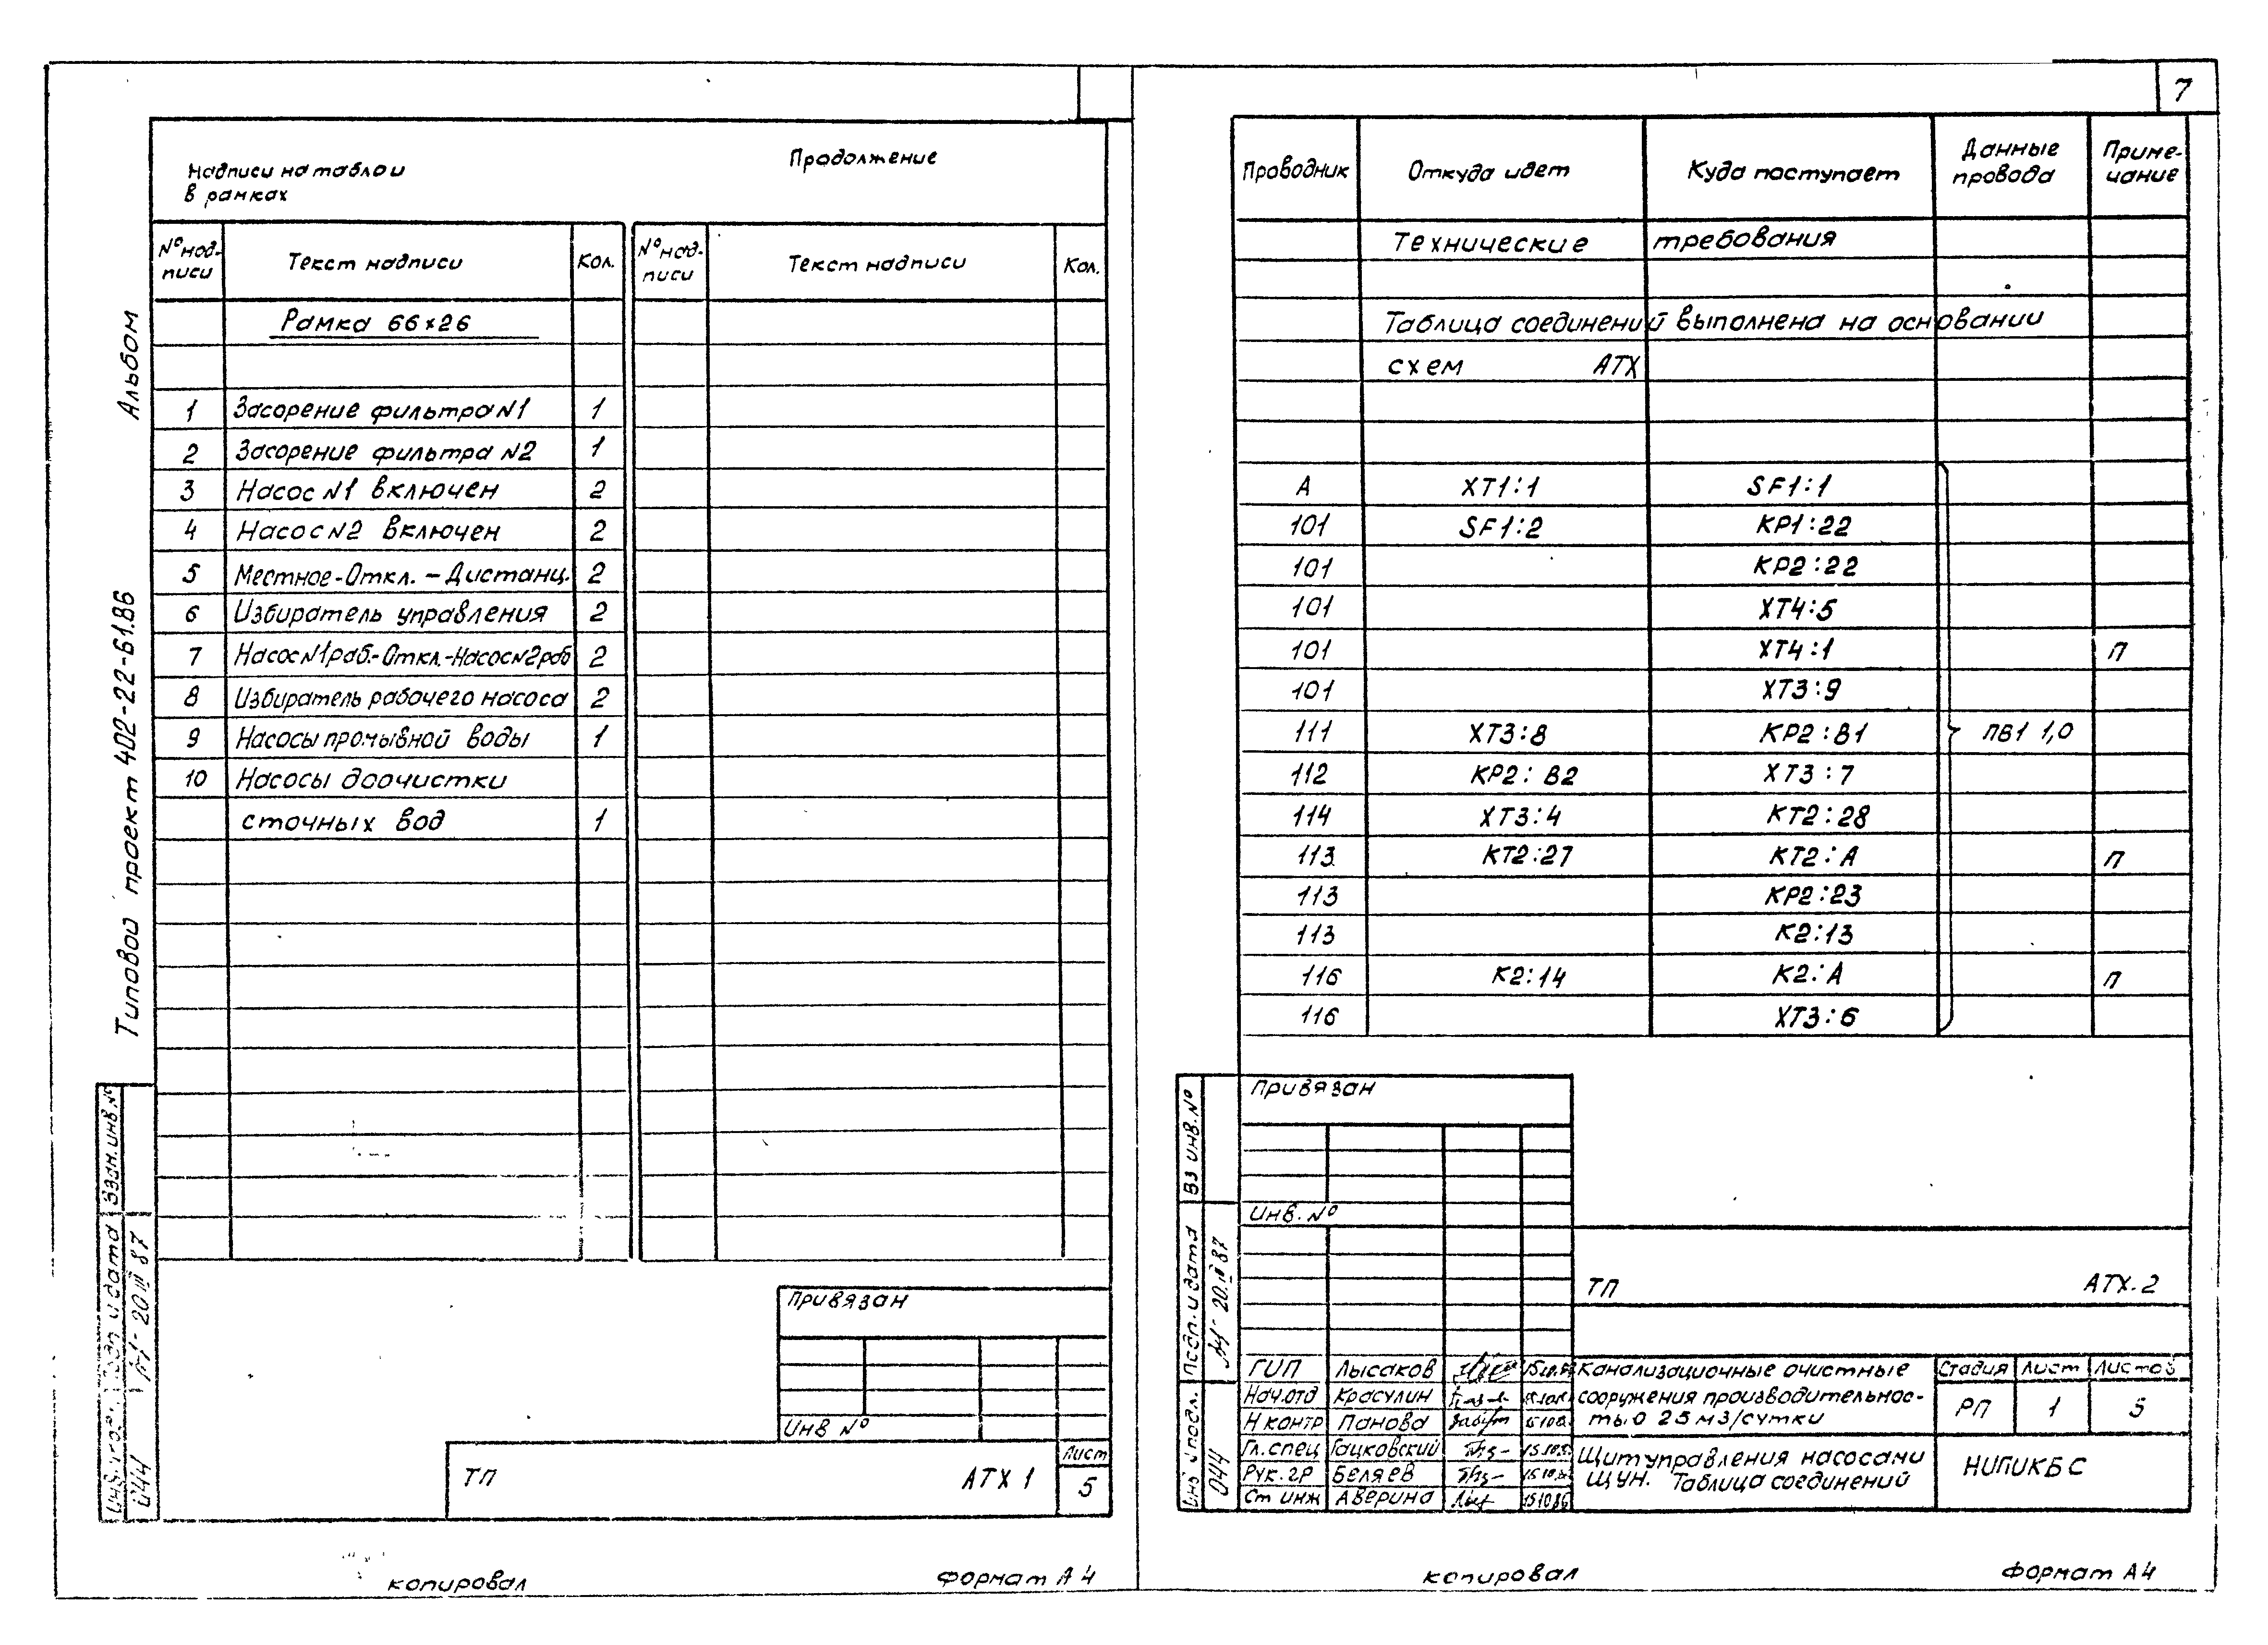 Продолжение
Надписи на таблои
в рамках
№ над-
писи
Текст надписи
Кол.
№ над-
писи
Текст надписи
Кол.
Рамка 66×26
1 Засорение фильтра N1 1
2 Засорение фильтра N2 1
3 Насос N1 включен 2
4 Насос N2 включен 2
5 Местное-Откл.-Дистанц. 2
6 Избиратель управления 2
7 Насос N1 раб.-Откл.-Насос N2 раб 2
8 Избиратель рабочего насоса 2
9 Насосы промывной воды 1
10 Насосы доочистки
сточных вод 1
Альбом
Типовой проект 402-22-61.86
Взам. инв. №
Подп и дата
20 III 87
044
Привязан
Инв №
ТП АТХ 1
Лист
5
копировал
Формат А4
7
Проводник
Откуда идет
Куда поступает
Данные
провода
Приме-
чание
Технические требования
Таблица соединений выполнена на основании
схем АТХ
А XT1:1 SF1:1
101 SF1:2 KP1:22
101 KP2:22
101 XT4:5
101 XT4:1 П
101 XT3:9
111 XT3:8 KP2:B1 ПВ1 1,0
112 KP2:B2 XT3:7
114 XT3:4 KT2:28
113 KT2:27 KT2:A П
113 KP2:23
113 K2:13
116 K2:14 K2:A П
116 XT3:6
Привязан
Инв. №
ВЗ инв. №
Подп. и дата
20.III 87
Инв № подл.
044
ТП АТХ.2
ГИП Лысаков
Нач.отд Красулин
Н контр Панова
Гл. спец Гацковский
Рук. гр Беляев
Ст инж Аверина 15.10.86
Канализационные очистные
сооружения производительнос-
тью 25 м3/сутки
Щит управления насосами
ЩУН. Таблица соединений
Стадия Лист Листов
РП 1 5
НИПИКБС
копировал
Формат А4